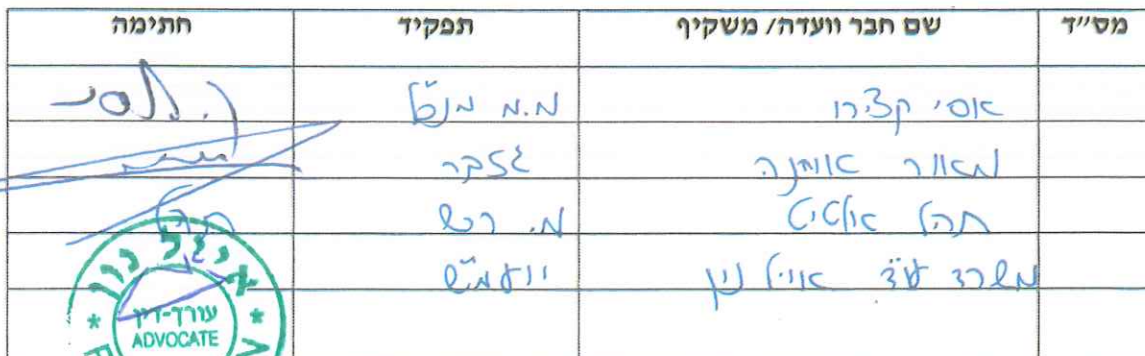 מס״ד שם חבר וועדה/ משקיף תפקיד חתימה
אסי קצירו מ.מ מנכ״ל
מאור אוחנה גזבר
תהל מ. רכש
משרד עו״ד יועמ״ש
עורך-דין
ADVOCATE